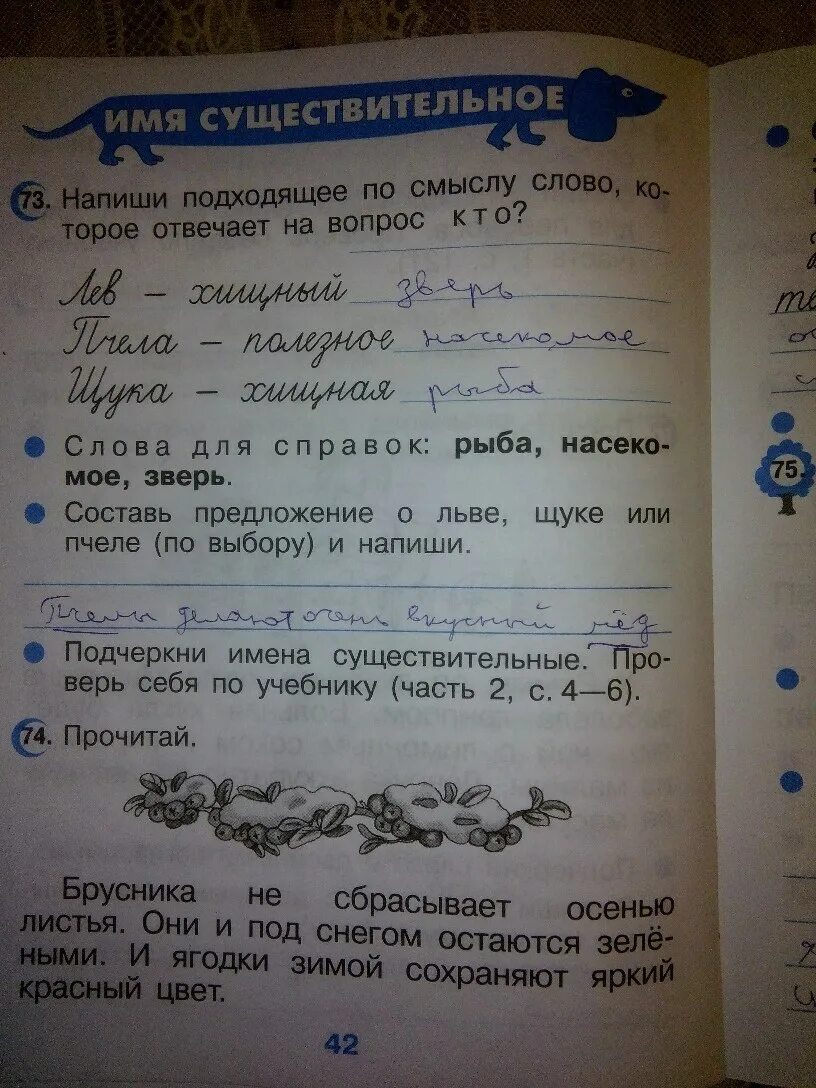 ИМЯ СУЩЕСТВИТЕЛЬНОЕ
73. Напиши подходящее по смыслу слово, ко-
торое отвечает на вопрос кто?
Лев – хищный зверь
Пчела – полезное насекомое
Щука – хищная рыба
Слова для справок: рыба, насеко-
мое, зверь.
Составь предложение о льве, щуке или
пчеле (по выбору) и напиши.
Пчелы делают очень вкусный мёд
Подчеркни имена существительные. Про-
верь себя по учебнику (часть 2, с. 4—6).
74. Прочитай.
Брусника не сбрасывает осенью
листья. Они и под снегом остаются зелё-
ными. И ягодки зимой сохраняют яркий
красный цвет.
42
75.